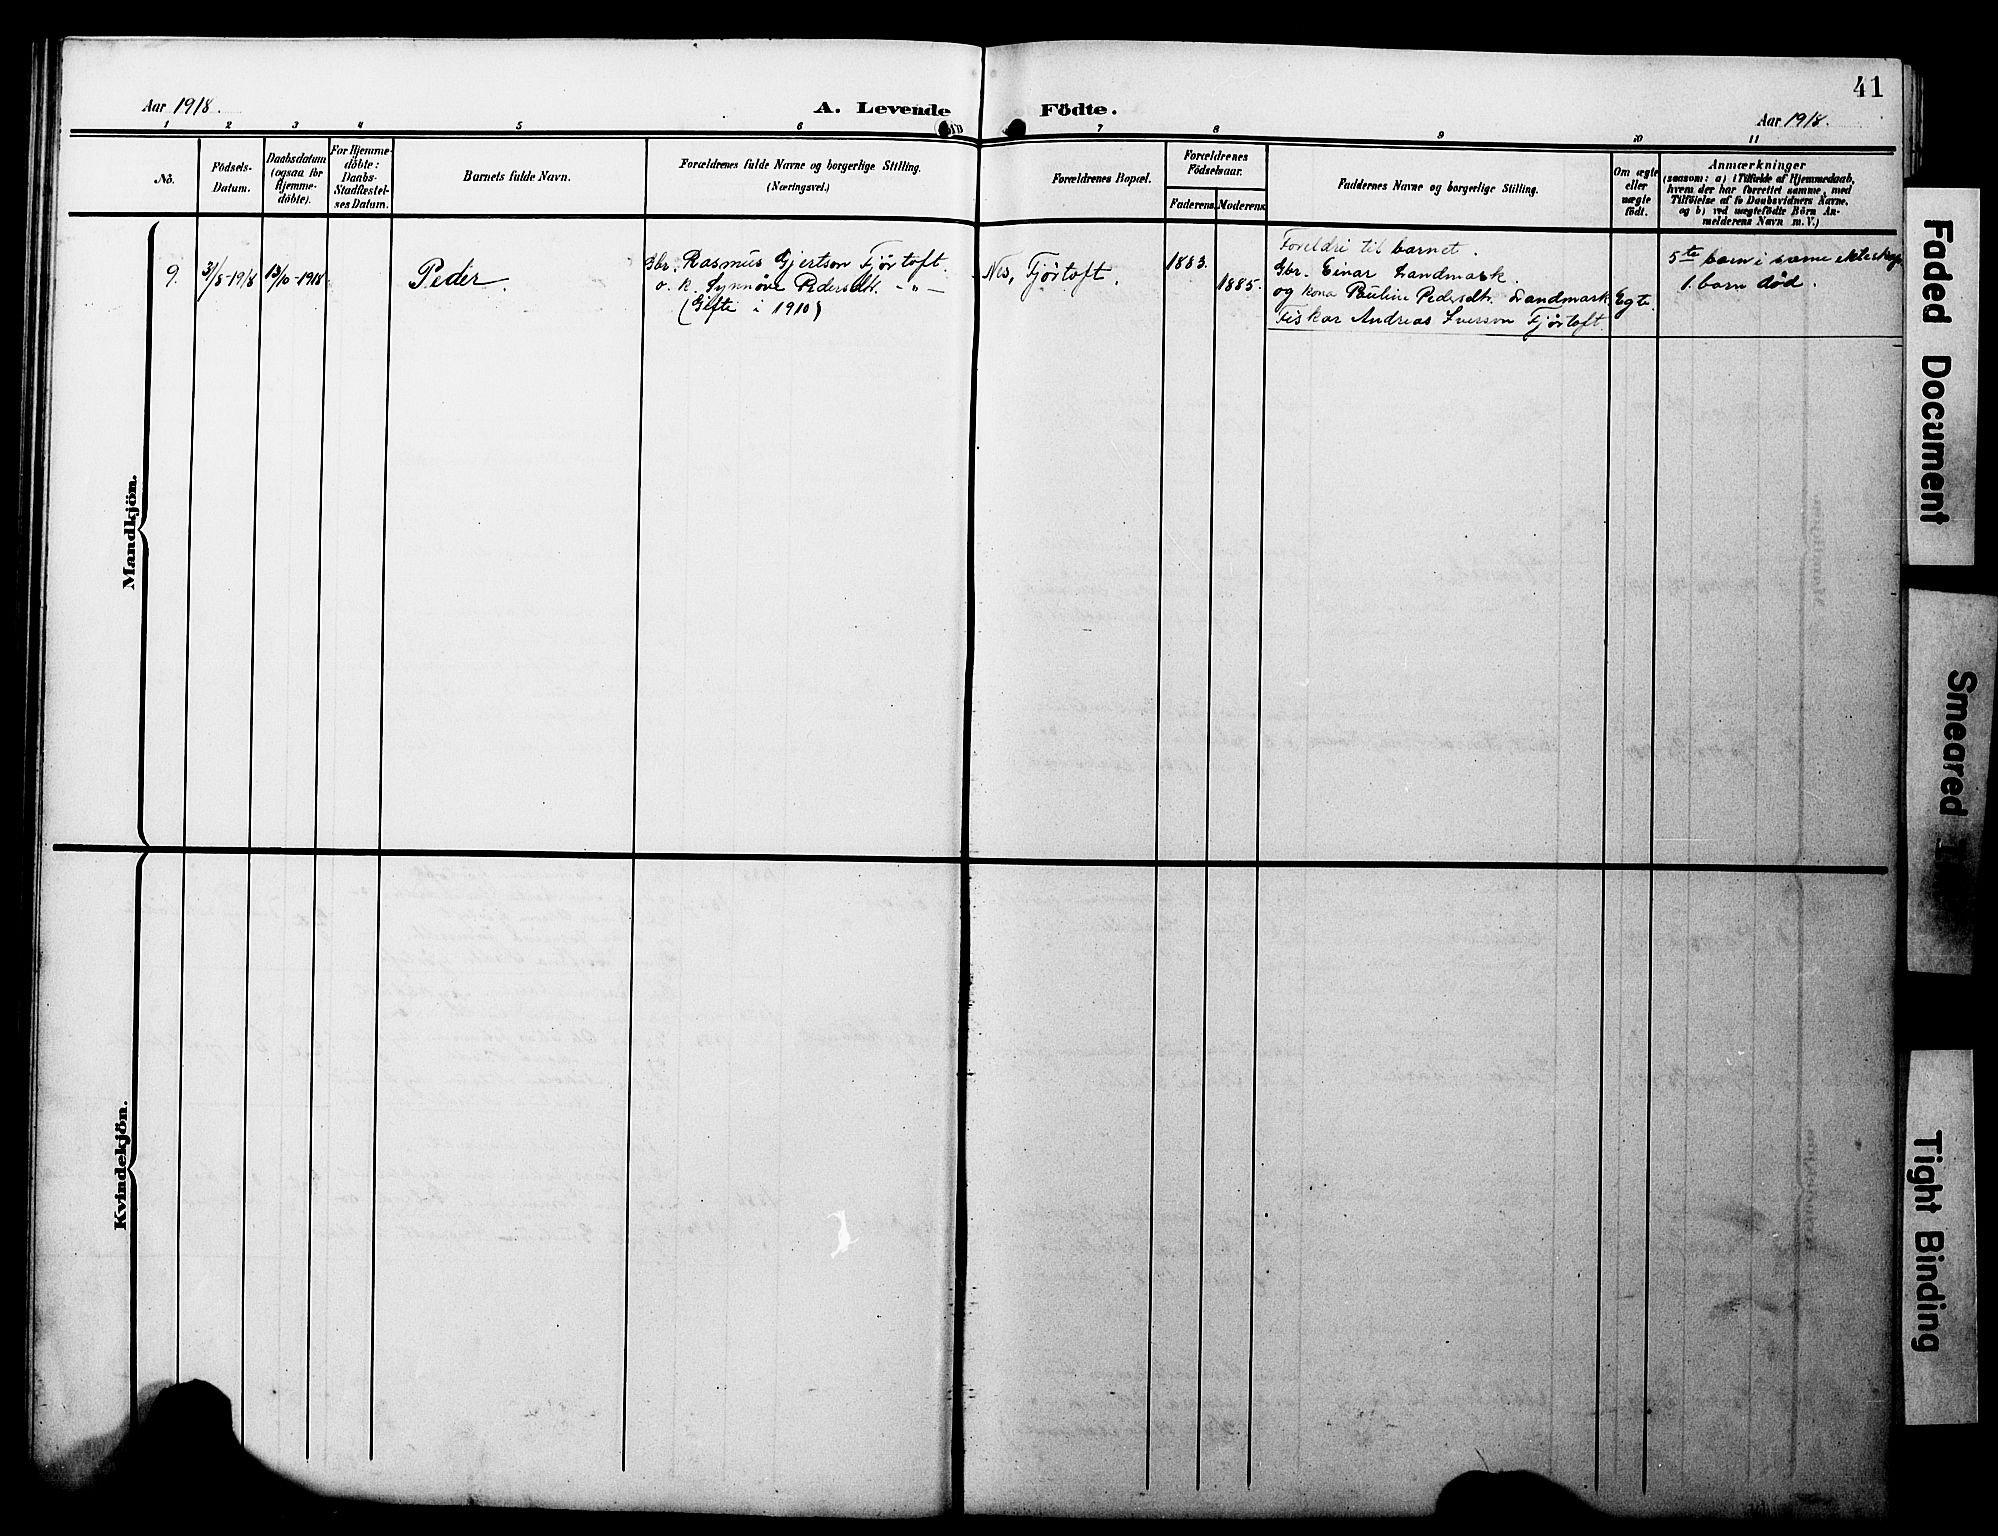 41
Aar 1918.
A. Levende
Födte.
Aar 1918.
1 2 3 4 5 6 7 8 9 10 11
No.
Födsels-
Datum.
Daabsdatum
(ogsaa for
Hjemme-
döbte).
For Hjemme-
döbte:
Daabs-
Stadfæstel-
ses Datum.
Barnets fulde Navn.
Forældrenes fulde Navne og borgerlige Stilling.
(Næringsvei.)
Forældrenes Bopæl.
Forældrenes
Födselsaar.
Faderens.
Moderens.
Faddernes Navne og borgerlige Stilling.
Om ægte
eller
uægte
födt.
Anmærkninger
(saasom: a) i Tilfælde af Hjemmedaab,
hvem der har forrettet samme, med
Tilföielse af to Daabsvidners Navne,
og b) ved uægtefödte Börn An-
melderens Navn m. V.)
Mandkjön.
9.
31/8-1918
13/10-1918
Peder.
Gbr. Rasmus Gjertson Fjørtoft.
o. k. Synnøve Pedersdtr. -"-
(Gifte i 1910)
Nes, Fjørtoft.
1883.
1885.
Foreldri til barnet.
Gbr. Einar Landmark
og kona Pauline Pedersdtr. Landmark
Fiskar Andreas Iverson Fjørtoft.
Egte.
5te barn i same ekteskap
1 barn død.
Kvindekjön.
Faded Document
Smeared
Tight Binding